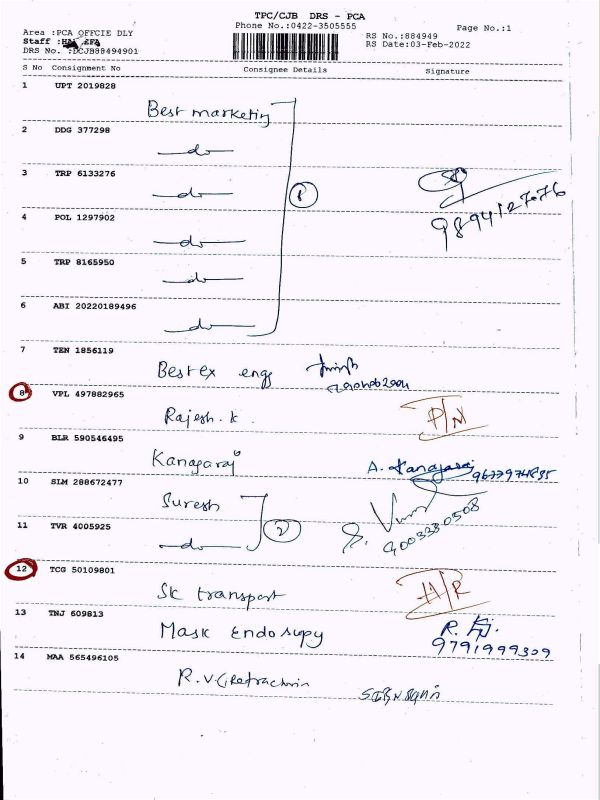 TPC/CJB DRS - PCA
Phone No.:0422-3505555
Page No.:1
Area :PCA OFFCIE DLY
RS No.:884949
Staff :
RS Date:03-Feb-2022
DRS No. :DCJB88494901
S No Consignment No Consignee Details Signature
1 UPT 2019828
Best marketing
2 DDG 377298
do
3 TRP 6133276
do
4 POL 1297902
do
5 TRP 8165950
do
6 ABI 20220189496
do
7 TEN 1856119
Best ex engg
8 VPL 497882965
Rajesh. K.
9 BLR 590546495
Kanagaraj A. Kanagaraj
10 SLM 288672477
Suresh
2
9003330508
11 TVR 4005925
do
12 TCG 50109801
SK transport
13 TNJ 609813
Mask Endosupy
9791999309
14 MAA 565496105